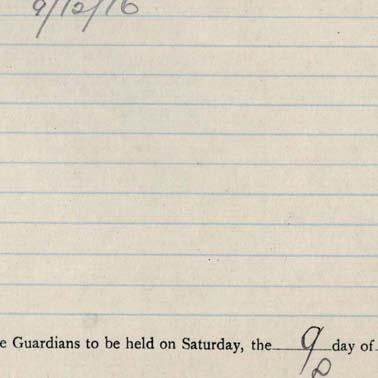 9/12/16
e Guardians to be held on Saturday, the 9 day of